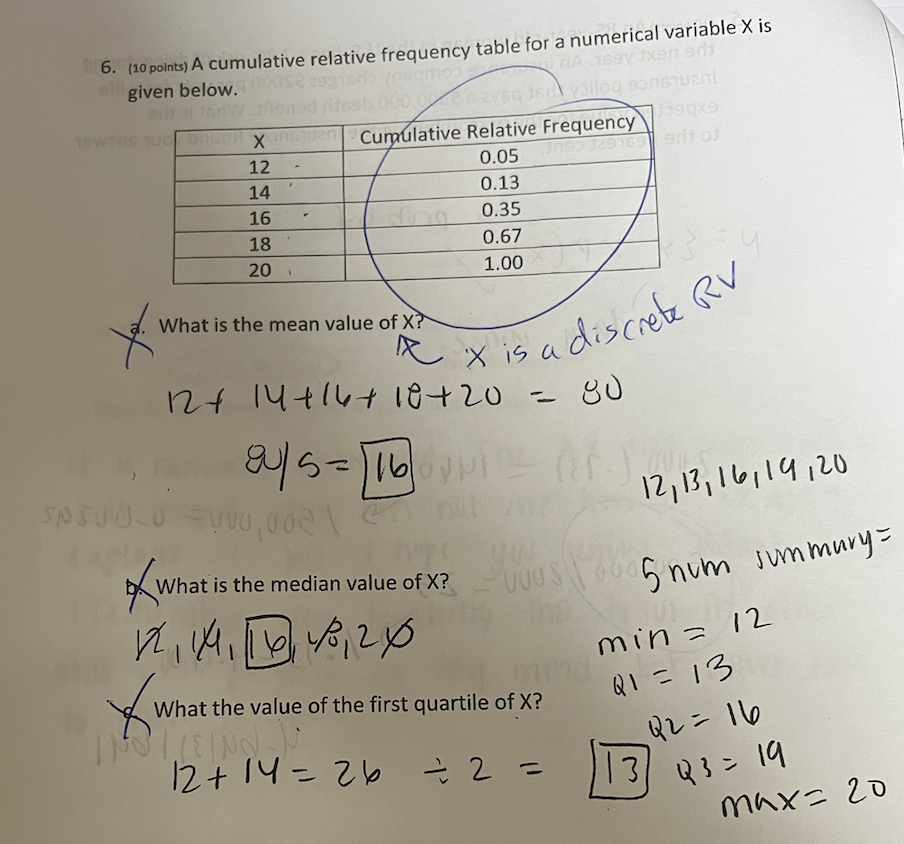 6. (10 points) A cumulative relative frequency table for a numerical variable X is
given below.
X Cumulative Relative Frequency
12 0.05
14 0.13
16 0.35
18 0.67
20 1.00
a. What is the mean value of X?
X is a discrete RV
12 + 14 + 16 + 18 + 20 = 80
80/5 = 16
12, 13, 16, 19, 20
5 num summary =
b. What is the median value of X?
12, 14, 16, 18, 20
min = 12
Q1 = 13
c. What the value of the first quartile of X?
Q2 = 16
12 + 14 = 26 ÷ 2 = 13
Q3 = 19
max = 20